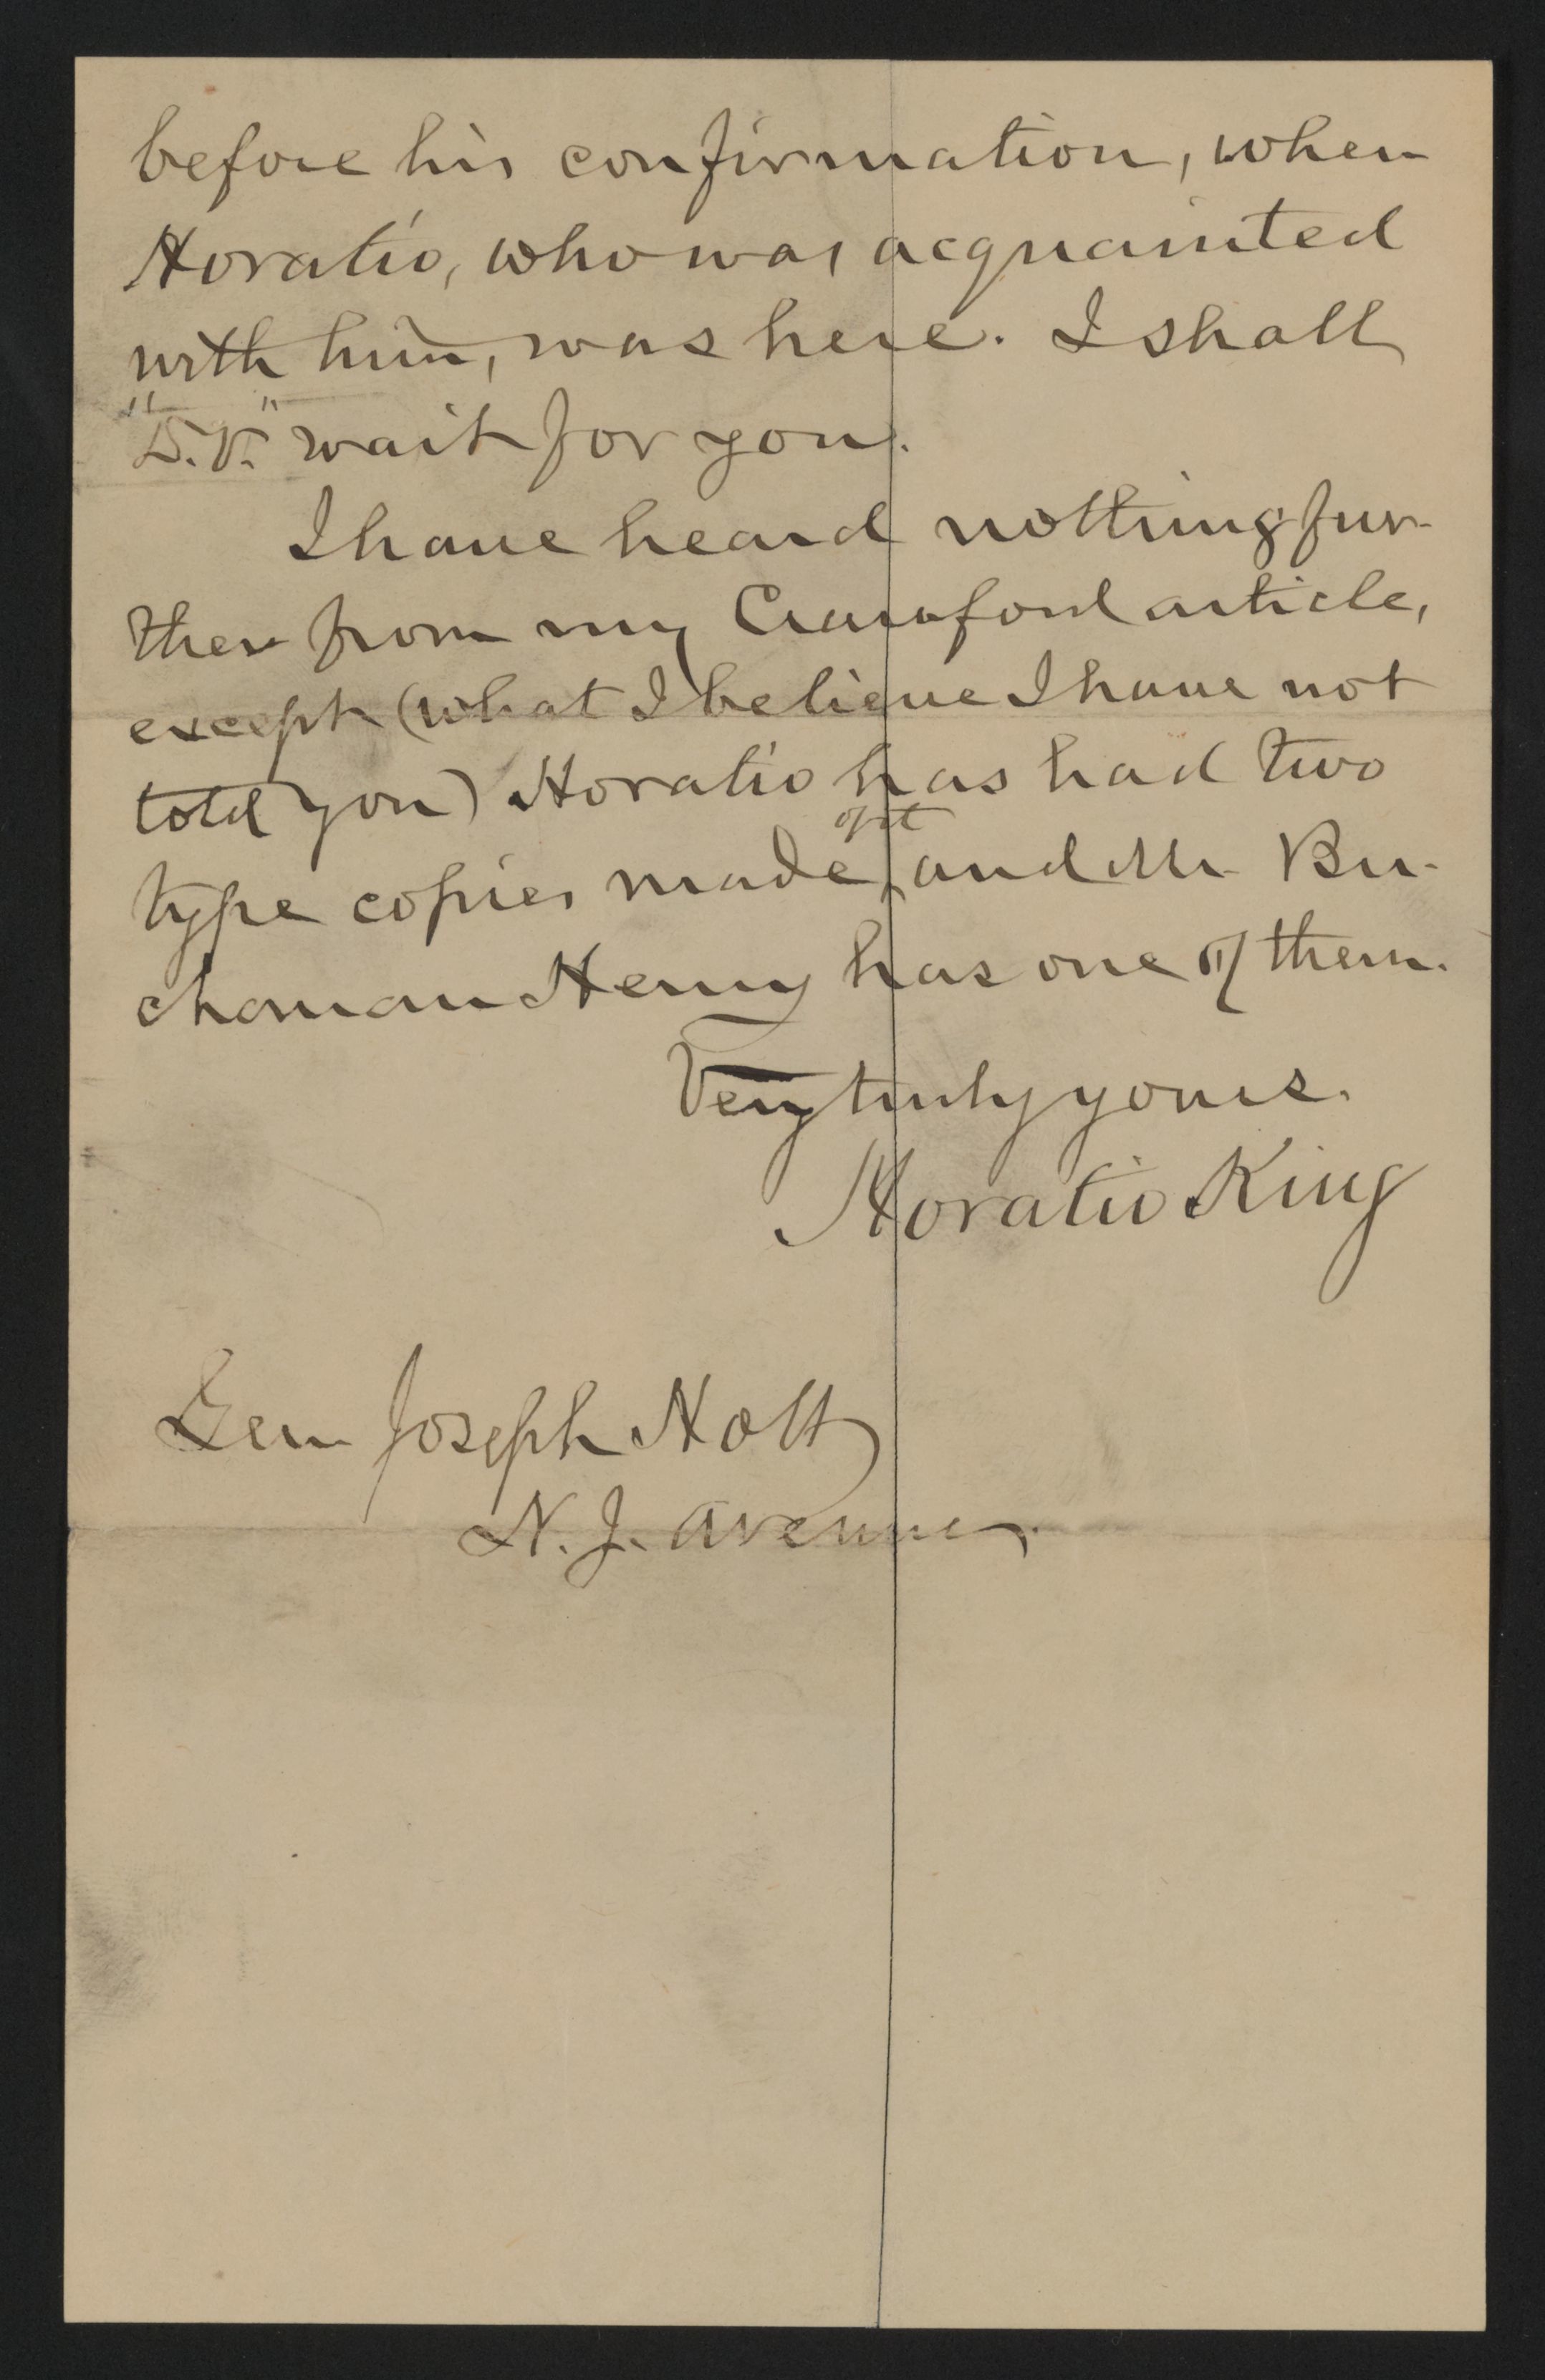 before his confirmation, when
Horatio, who was acquainted
with him, was here. I shall
"D.V." wait for you.
I have heard nothing fur-
ther from my Crawford article,
except (what I believe I have not
told you) Horatio has had two
of it
type copies made, and Mr Bu-
chanan Henry has one of them.
Very truly yours.
Horatio King
Gen Joseph Holt
N. J. Avenue.